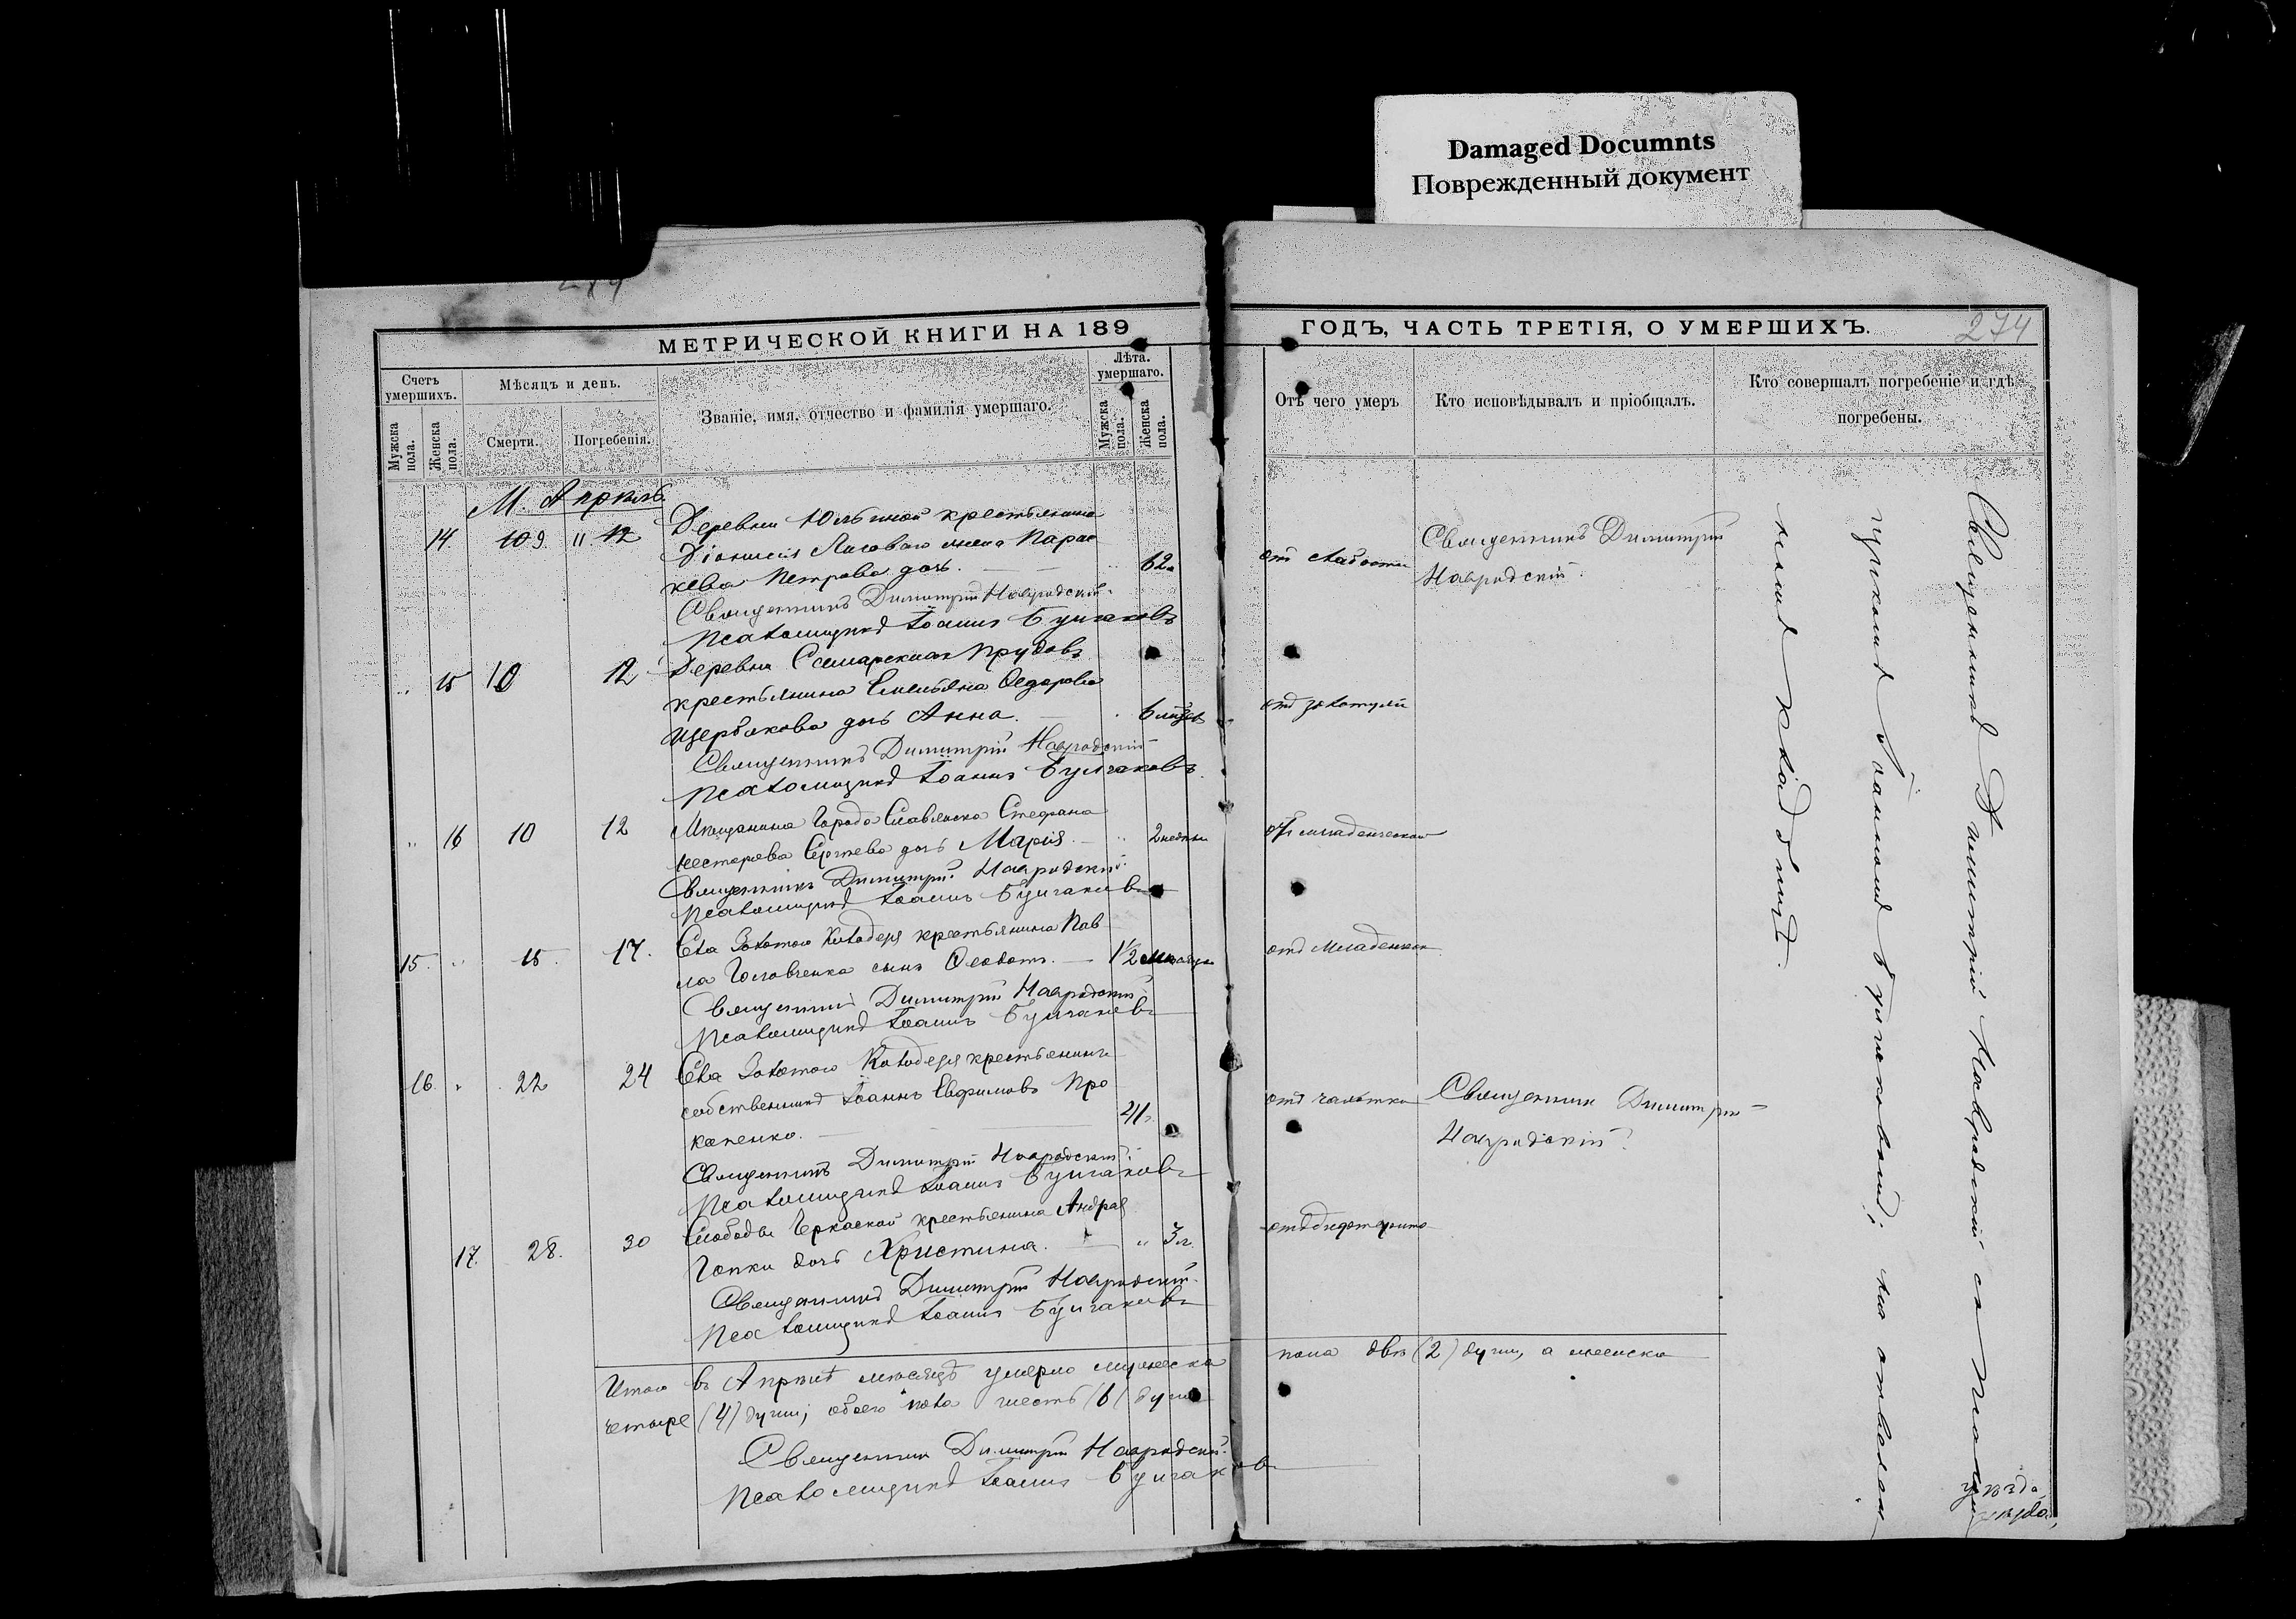 Damaged Documnts
Поврежденный документ
МЕТРИЧЕСКОЙ КНИГИ НА 189
ГОДЪ, ЧАСТЬ ТРЕТІЯ, О УМЕРШИХЪ.
274
Счетъ умершихъ.
Мѣсяцъ и день.
Званіе, имя, отчество и фамилія умершаго.
Лѣта. умершаго.
Мужска пола.
Женска пола.
Смерти.
Погребенія.
Мужска пола.
Женска пола.
Отъ чего умеръ
Кто исповѣдывалъ и пріобщалъ.
Кто совершалъ погребеніе и гдѣ погребены.
М. Апрѣль
14. 9. 11. Деревни крестьянина
Діонисія жена Парас
кева Петрова дочь. 62
отъ слабости
Священникъ Димитрій
Навродскій.
Священникъ Димитрій Навродскій.
Псаломщикъ Іоаннъ Булгаковъ
15 10 12 Деревни Самарскихъ Прудовъ
крестьянина Емельяна Ѳедорова
Щербакова дочь Анна. 6
отъ золотухи
Священникъ Димитрій Навродскій
Псаломщикъ Іоаннъ Булгаковъ.
16 10 12 Мѣщанина Города Славянска Стефана
Нестерова Сергѣева дочь Марія. 2 недѣли
отъ младенческой
Священникъ Димитрій Навродскій.
Псаломщикъ Іоаннъ Булгаковъ
15. 15. 17. Села Золотого Колодезя крестьянина Пав
ла Головченка сынъ Ѳеодотъ. 1½ мѣсяца
отъ младенческ
Священникъ Димитрій Навродскій
Псаломщикъ Іоаннъ Булгаковъ
16. 22 24 Села Золотого Колодезя крестьянинъ
собственникъ Іоаннъ Евфимовъ Про
капенко. 41
отъ чахотки
Священникъ Димитрій
Навродскій
Священникъ Димитрій Навродскій.
Псаломщикъ Іоаннъ Булгаковъ
17. 28. 30 Слободы Черкаской крестьянина Андрея
Гапки дочь Христина. 3 г.
отъ дифтерита
Священникъ Димитрій Навродскій.
Псаломщикъ Іоаннъ Булгаковъ
Итого въ Апрѣлѣ мѣсяцѣ умерло мужеска
пола двѣ (2) души, а женска
четыре (4) души; обоего пола шесть (6) душъ
Священникъ Димитрій Навродскій.
Псаломщикъ Іоаннъ Булгаковъ
Священникъ Димитрій Навродскій съ Псаломщикомъ Іоанномъ Булгаковымъ; на
кладбищѣ.